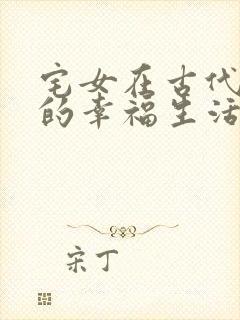 宅女在古代
的幸福生活
宋丁